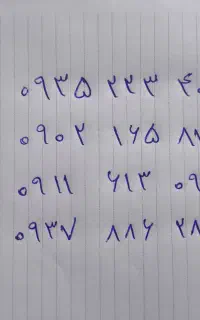 ۰۹۳۵ ۲۲۳ ۴۰
۰۹۰۲ ۱۶۵ ۸۸
۰۹۱۱ ۶۱۳ ۰۹
۰۹۳۷ ۸۸۶ ۲۸